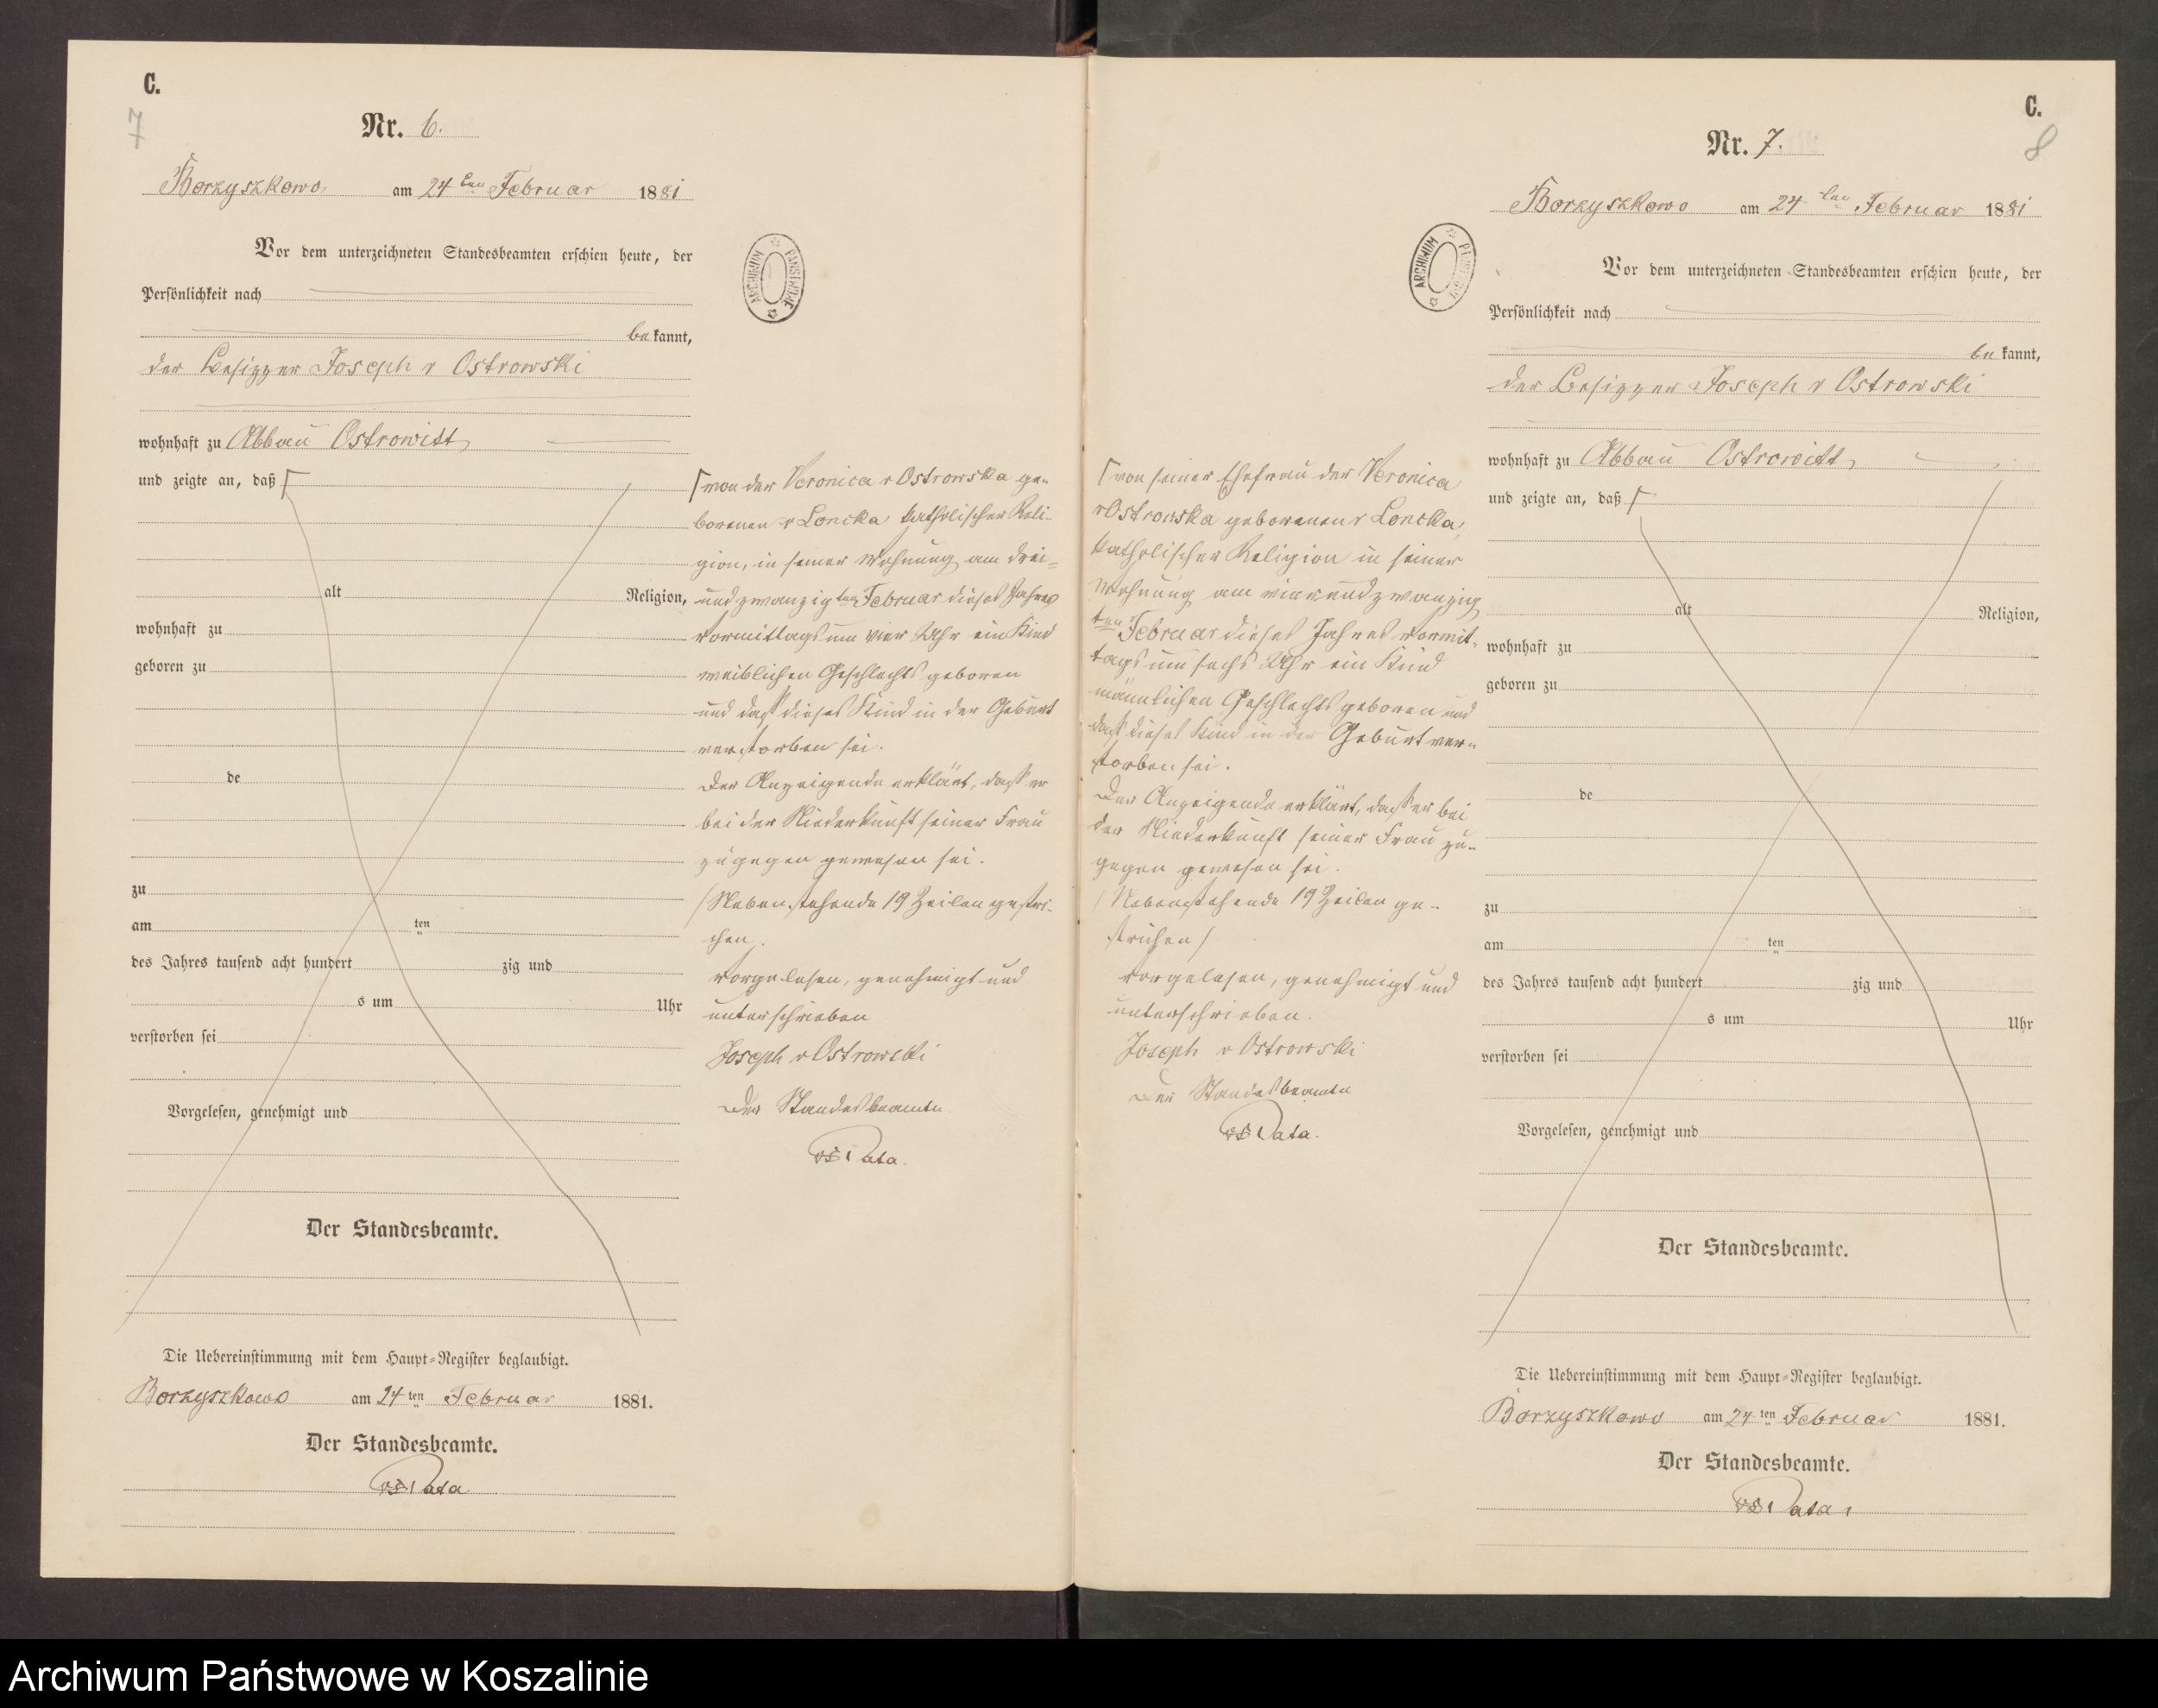 C.
7
Nr. 6.
Borzyszkowo am 24 ten Februar 1881
Vor dem unterzeichneten Standesbeamten erschien heute, der
Persönlichkeit nach
bekannt,
der Besitzer Joseph v Ostrowski
wohnhaft zu Abbau Ostrowitt,
und zeigte an, daß
alt Religion,
wohnhaft zu
geboren zu
de
zu
am ten
des Jahres tausend acht hundert zig und
s um Uhr
verstorben sei
Vorgelesen, genehmigt und
Der Standesbeamte.
Die Uebereinstimmung mit dem Haupt-Register beglaubigt.
Borzyszkowo am 24 ten Februar 1881.
Der Standesbeamte.
Pata
ARCHIWUM PAŃSTWOWE
von der Veronica v Ostrowska ge-
borenen v Loncka katholischer Reli-
gion, in seiner Wohnung am drei-
undzwanzigten Februar dieses Jahres
Vormittags um vier Uhr ein Kind
weiblichen Geschlechts geboren
und daß dieses Kind in der Geburt
verstorben sei.
Der Anzeigende erklärt, daß er
bei der Niederkunft seiner Frau
zugegen gewesen sei.
/Nebenstehende 19 Zeilen gestri-
chen.
Vorgelesen, genehmigt und
unterschrieben
Joseph v Ostrowski
Der Standesbeamte
Pata.
C.
8
Nr. 7.
Borzyszkowo am 24 ten Februar 1881
Vor dem unterzeichneten Standesbeamten erschien heute, der
Persönlichkeit nach
bekannt,
der Besitzer Joseph v Ostrowski
wohnhaft zu Abbau Ostrowitt,
und zeigte an, daß
alt Religion,
wohnhaft zu
geboren zu
de
zu
am ten
des Jahres tausend acht hundert zig und
s um Uhr
verstorben sei
Vorgelesen, genehmigt und
Der Standesbeamte.
Die Uebereinstimmung mit dem Haupt-Register beglaubigt.
Borzyszkowo am 24 ten Februar 1881.
Der Standesbeamte.
Pata
ARCHIWUM
von seiner Ehefrau der Veronica
v Ostrowska geborenen v Loncka,
katholischer Religion in seiner
Wohnung am vierundzwanzig
ten Februar dieses Jahres Vormit-
tags um sechs Uhr ein Kind
männlichen Geschlechts geboren und
daß dieses Kind in der Geburt ver-
storben sei.
Der Anzeigende erklärt, daß er bei
der Niederkunft seiner Frau zu-
gegen gewesen sei.
/Nebenstehende 19 Zeilen ge-
strichen/
Vorgelesen, genehmigt und
unterschrieben.
Joseph v Ostrowski
Der Standesbeamte
Pata.
Archiwum Państwowe w Koszalinie